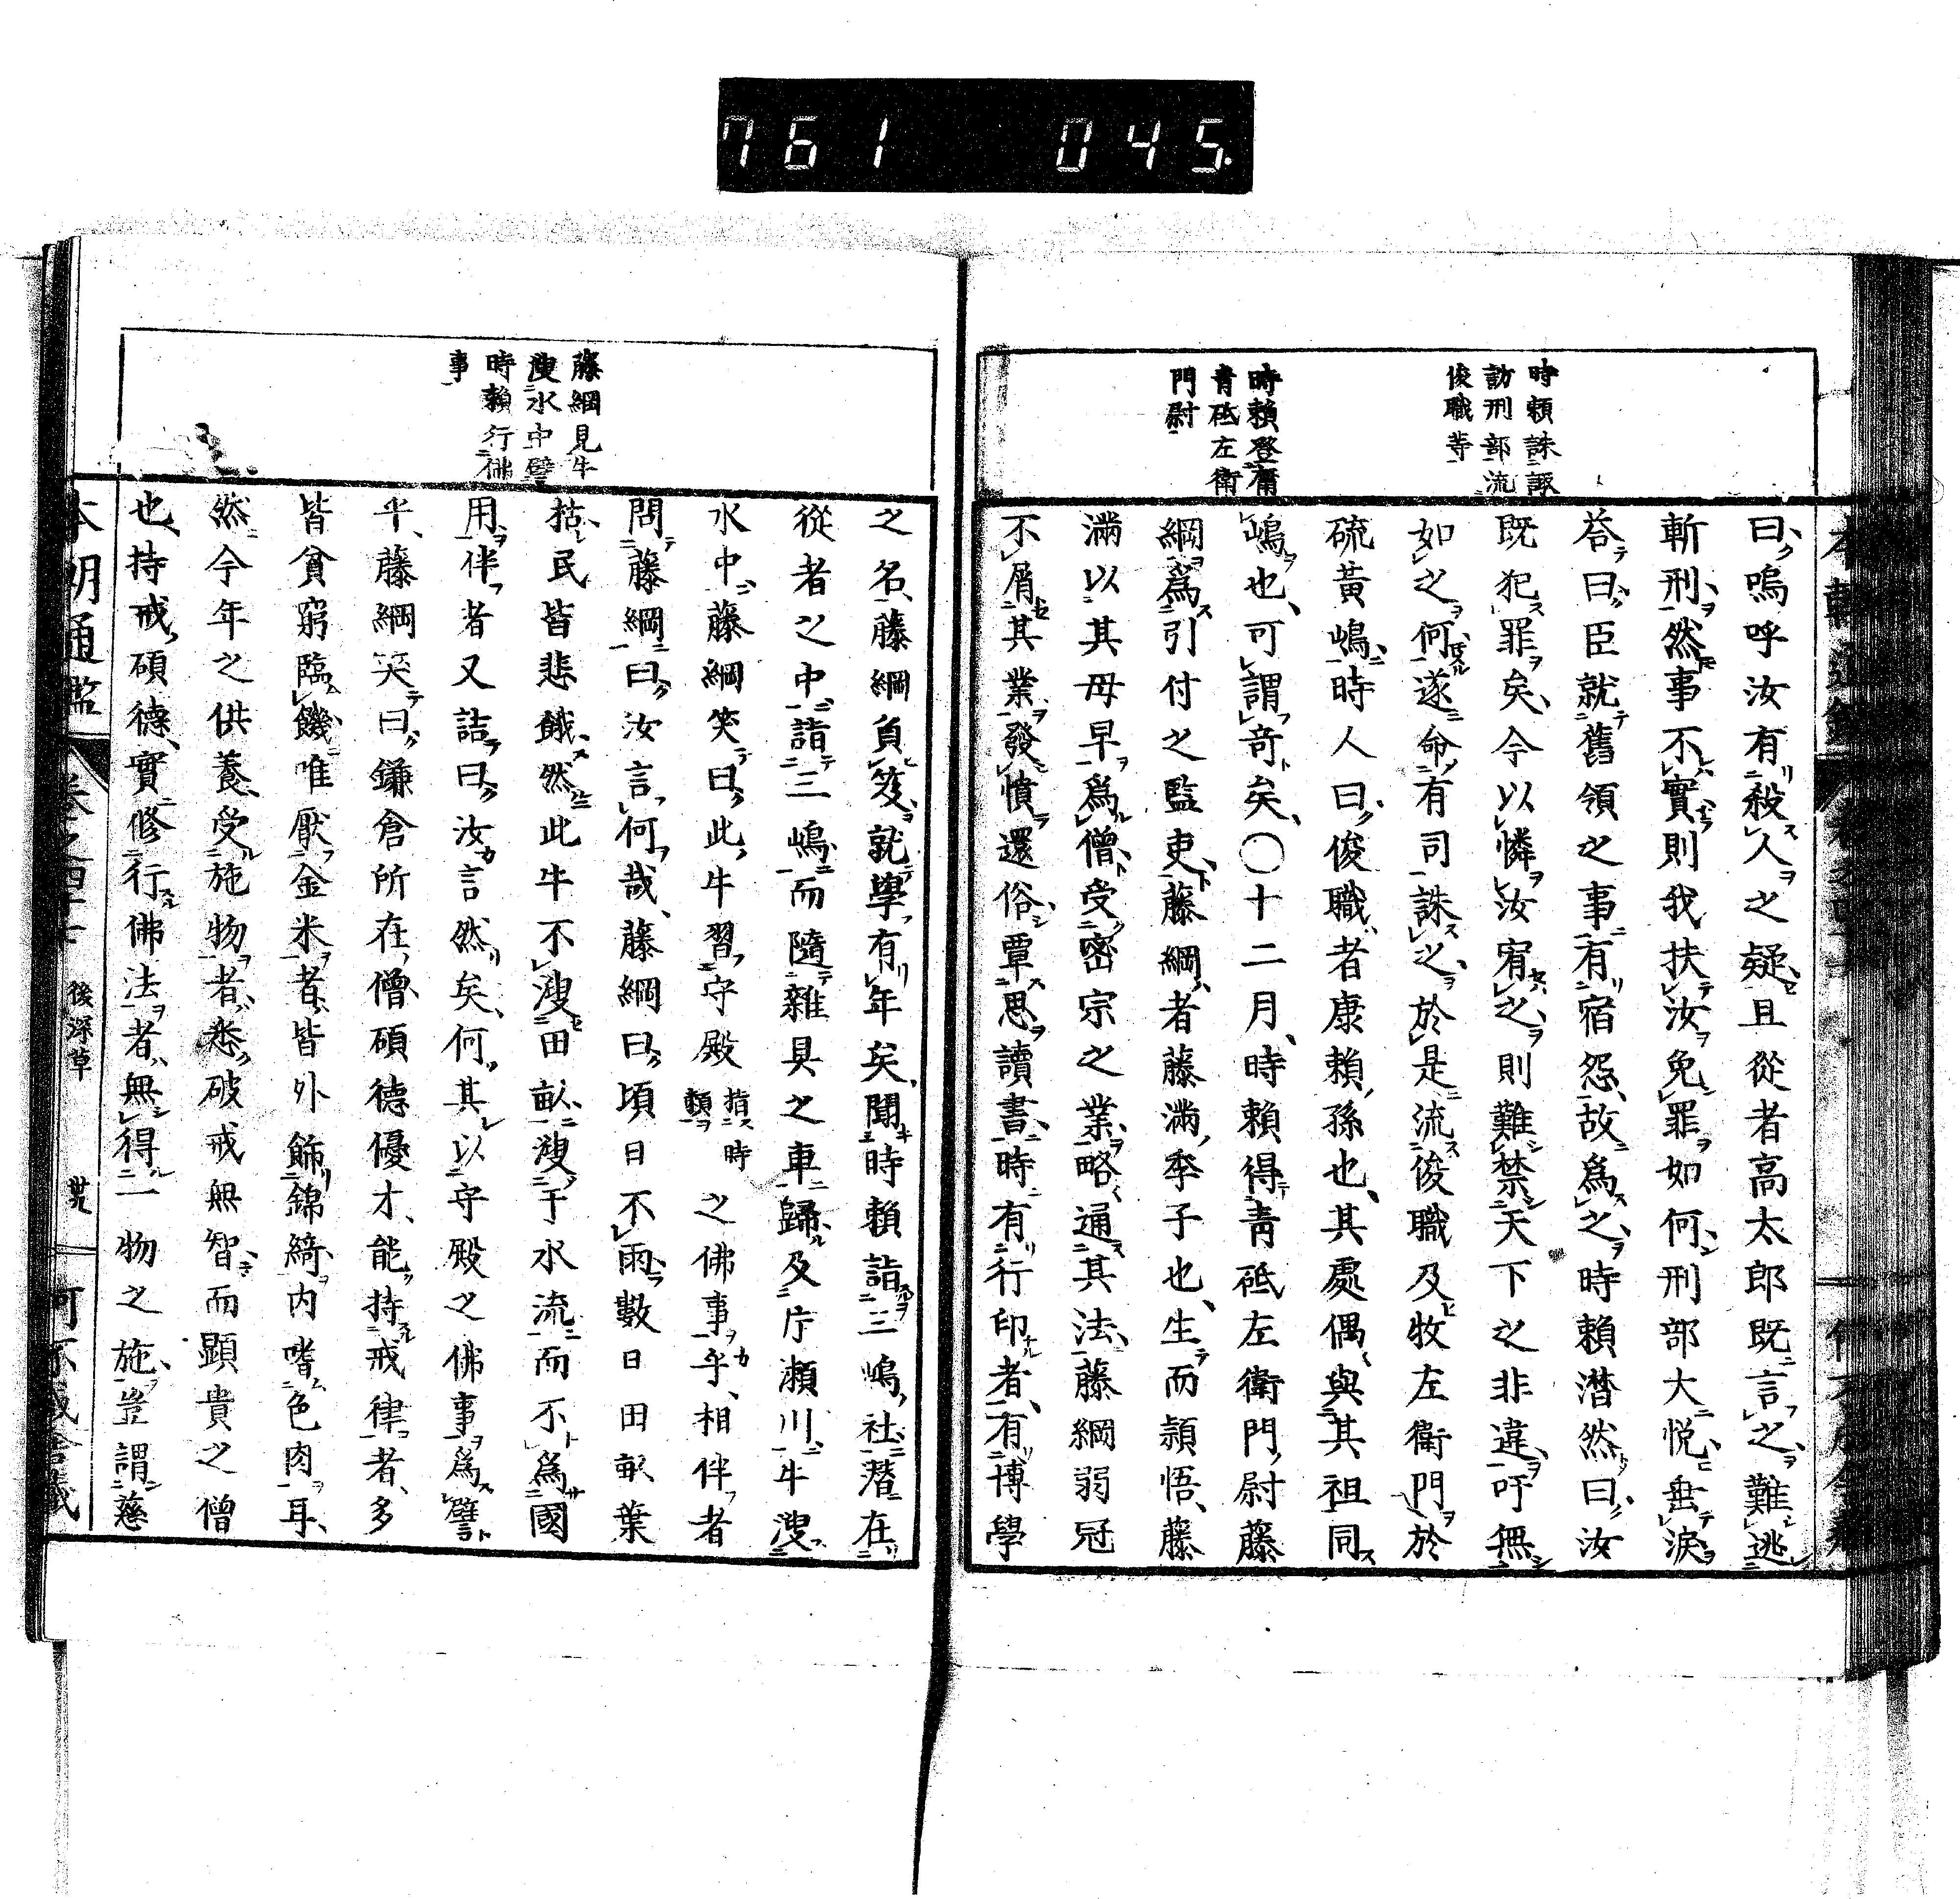 761 045.
時頼誅諏
訪刑部流
俊職等
時頼登庸
青砥左衛
門尉
曰嗚呼汝有殺人之疑且從者高太郎既言之難逃
斬刑然事不實則我扶汝免罪如何刑部大悦垂淚
荅曰臣就舊領之事有宿怨故爲之時頼潸然曰汝
既犯罪矣今以憐汝宥之則難禁天下之非違吁無
如之何遂命有司誅之於是流俊職及牧左衞門於
硫黃嶋時人曰俊職者康頼孫也其處偶與其祖同
嶋也可謂奇矣〇十二月時頼得青砥左衛門尉藤
綱爲引付之監吏藤綱者藤滿季子也生而頴悟藤
滿以其母早爲僧受密宗之業略通其法藤綱弱冠
不屑其業發憤還俗覃思讀書時有行印者有博學
藤綱見牛
溲水中譬
時頼行佛
事
之名藤綱負笈就學有年矣聞時頼詣三嶋社潛在
從者之中詣三嶋而隨雜具之車歸及庁瀬川牛溲
水中藤綱笑曰此牛習守殿指時頼之佛事乎相伴者
問藤綱曰汝言何哉藤綱曰頃日不雨數日田畝葉
枯民皆悲餓然此牛不溲田畝溲于水流而不爲國
用伴者又詰曰汝言然矣何其以守殿之佛事爲譬
乎藤綱笑曰鎌倉所在僧碩德優才能持戒律者多
皆貧窮臨饑唯厭金米者皆外餝錦綺内嗜色肉耳
然今年之供養受施物者悉破戒無智而顯貴之僧
也持戒碩德實修行佛法者無得一物之施豈謂慈
本朝通鑑 卷之四十 後深草 丗九